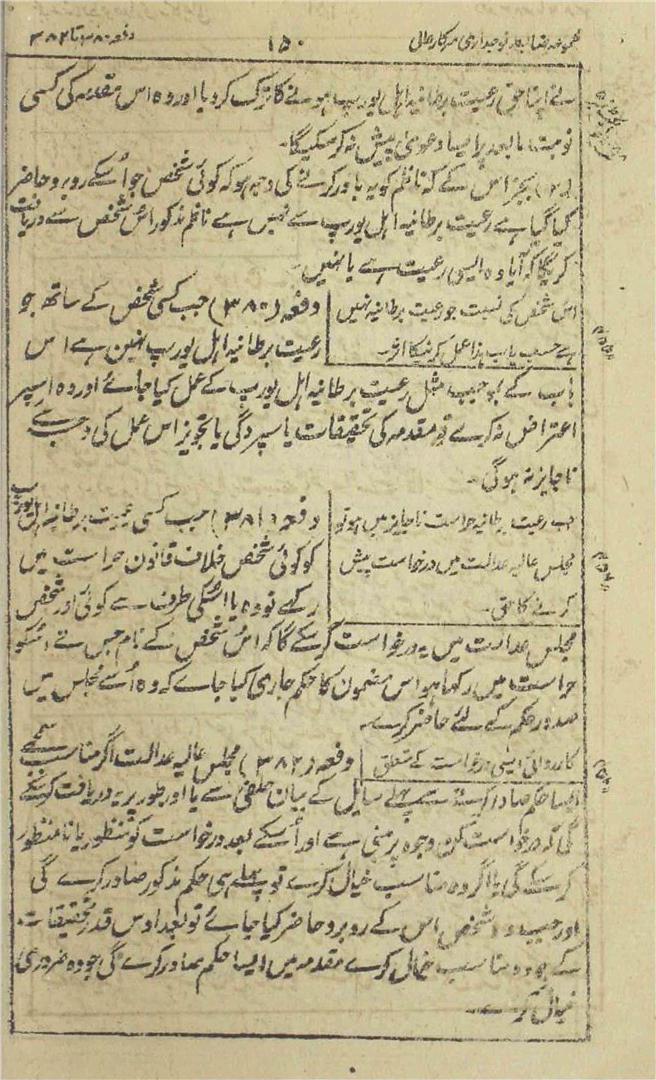 مجموعہ ضابطہ فوجداری سرکار عالی
۱۵۰
دفعہ ۳۸۰ تا ۳۸۲
نے اپنا حق رعیت برطانیہ اہل یورپ ہونے کا ترک کر دیا اور وہ اس مقدمہ کی کسی
نوبت مابعد پر ایسا دعویٰ پیش نہ کر سکیگا۔
(۲) بجز اس کے کہ ناظم کو یہ باور کرنے کی وجہ ہو کہ کوئی شخص جو اُسکے روبرو حاضر
کیا گیا ہے رعیت برطانیہ اہل یورپ سے نہیں ہے ناظم مذکور اس شخص سے دریافت
کریگا کہ آیا وہ ایسی رعیت ہے یا نہیں۔
اس شخص کی نسبت جو رعیت برطانیہ نہیں
ہے حسب باب ہذا عمل کرنیکا اثر۔
دفعہ (۳۸۰) جب کسی شخص کے ساتھ جو
رعیت برطانیہ اہل یورپ نہیں ہے اس
باب کے بموجب مثل رعیت برطانیہ اہل یورپ کے عمل کیا جائے اور وہ اسپر
اعتراض نہ کرے تو مقدمہ کی تحقیقات یا سپردگی یا تجویز اس عمل کی وجہ سے
ناجایز نہ ہوگی۔
جب رعیت برطانیہ حراست ناجایز میں ہو تو
مجلس عالیہ عدالت میں درخواست پیش
کرنے کا حق۔
دفعہ (۳۸۱) جب کسی رعیت برطانیہ اہل یورپ
کو کوئی شخص خلاف قانون حراست میں
رکھے تو وہ یا اسکی طرف سے کوئی اور شخص
مجلس عدالت میں یہ درخواست کر سکے گا کہ اس شخص کے نام جس نے اسکو
حراست میں رکھا ہو اس مضمون کا حکم جاری کیا جاے کہ وہ اُسے مجلس میں
صدور حکم کے لئے حاضر کرے۔
کارروائی ایسی درخواست کے متعلق
دفعہ (۳۸۲) مجلس عالیہ عدالت اگر مناسب سمجھے
ایسا حکم صادر کرنے سے پہلے سایل کے بیان حلفی سے یا اور طور پر یہ دریافت کر سکے
گی کہ درخواست کن وجوہ پر مبنی ہے اور اُسکے بعد درخواست کو منظور یا نامنظور
کر سکے گی یا اگر وہ مناسب خیال کرے تو پہلے ہی حکم مذکور صادر کرے گی
اور جب وہ شخص اس کے روبرو حاضر کیا جائے تو بعد اوس قدر تحقیقات
کے جو وہ مناسب خیال کرے مقدمہ میں ایسا حکم صادر کرے گی جو وہ ضروری
خیال کرے۔